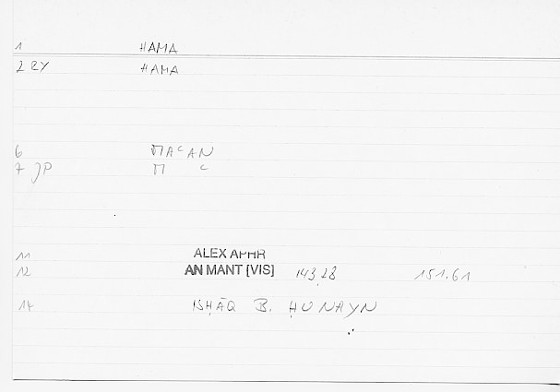 1 HAMA
2 RY HAMA
6 MAᶜAN
7 JP M ᶜ
11 ALEX APHR
12 AN MANT [VIS] 143,28 151.61
14 ISḤĀQ B. ḤUNAYN